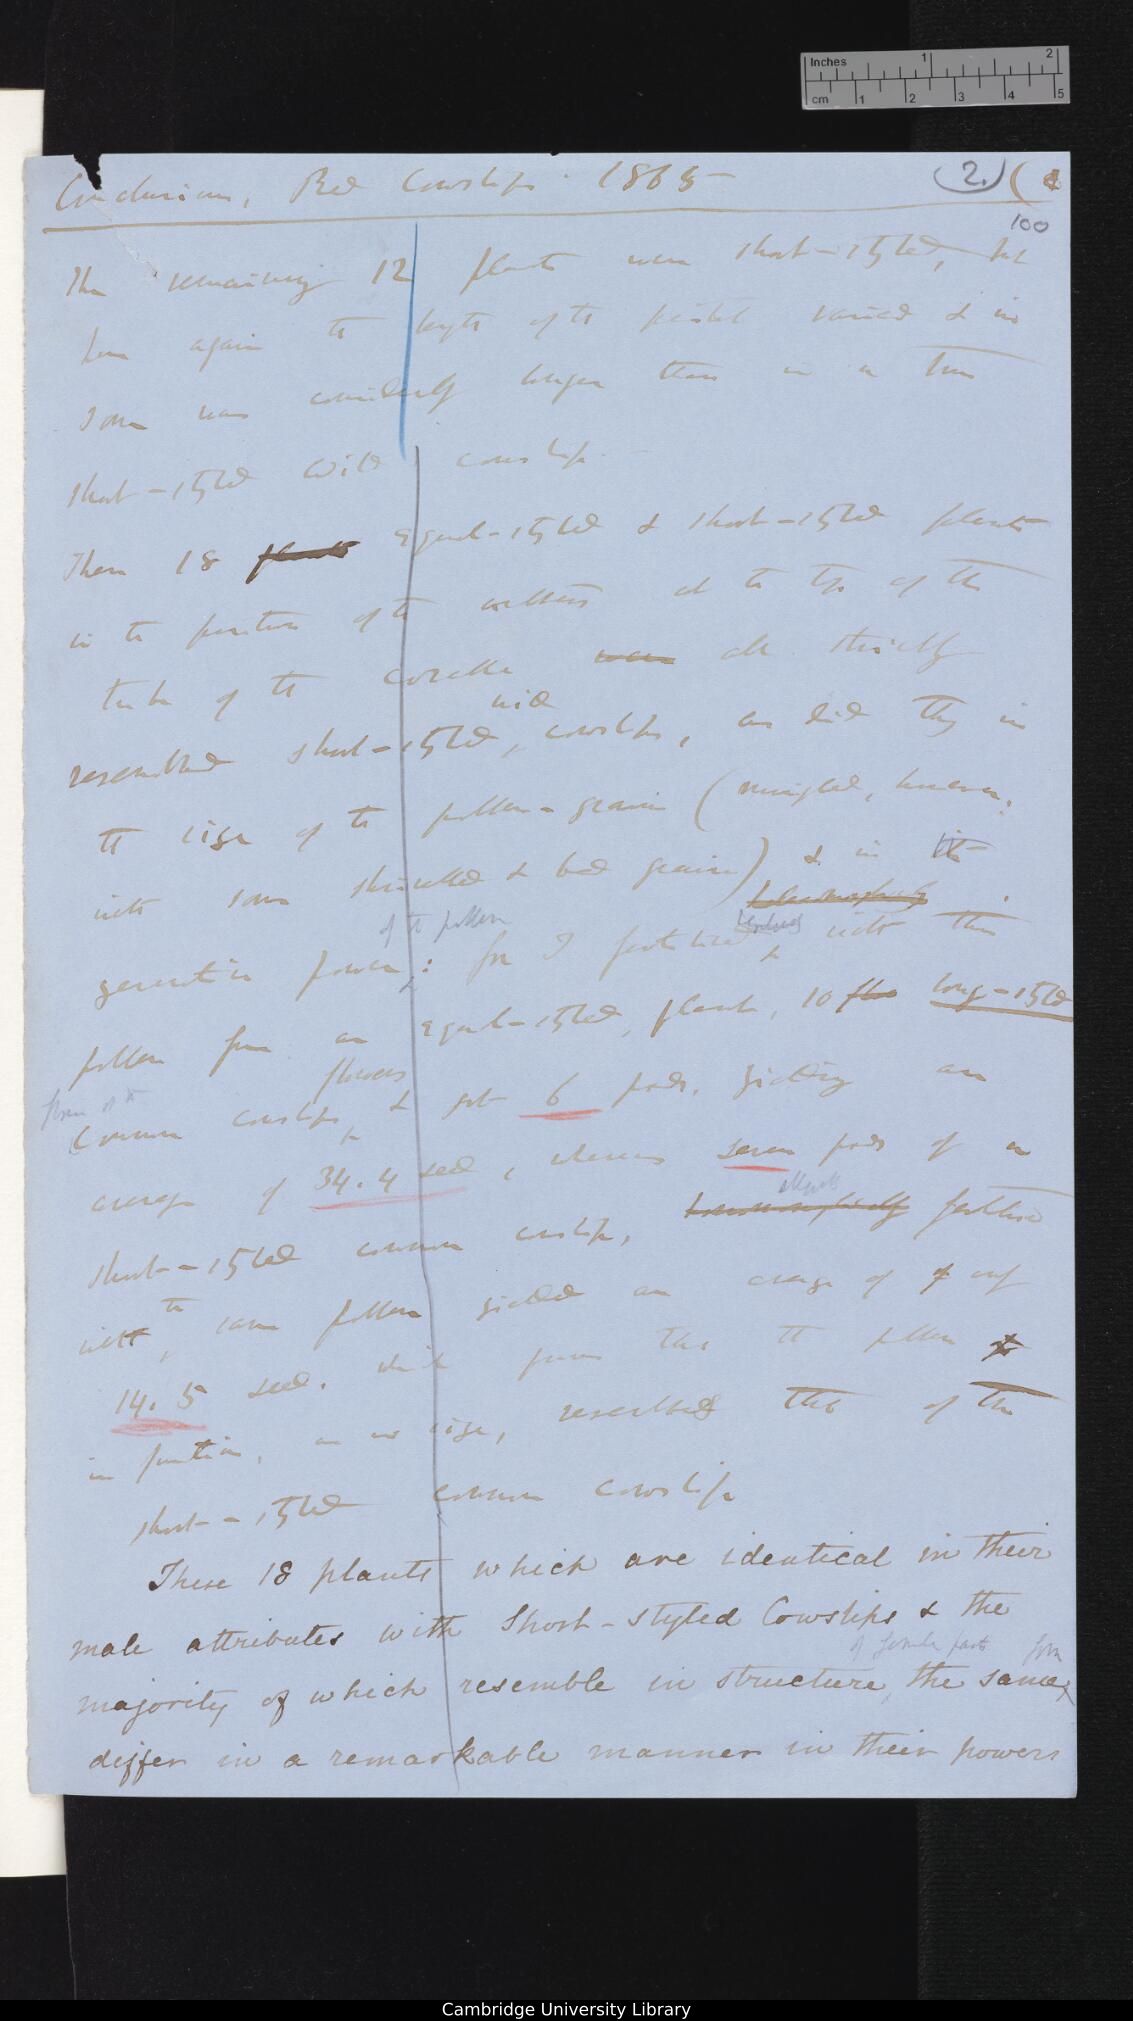 Inches 1 2
cm 1 2 3 4 5
Conclusion, Red Cowslips. 1865 —
2.
100
The remaining 12 plants were short-styled, but
here again the length of the pistil varied & in
some was considerably longer than in a true
short-styled wild cowslip.
These 18 plants equal-styled & short-styled plants
in the position of the anthers at the top of the
tube of the corolla were all strictly
wild
resembled short-styled, cowslips, as did they in
the size of the pollen-grains (mingled, however,
with some shrivelled & bad grains) & in the
homomorphically
of the pollen
generative power: for I fertilised with this
pollen from an equal-styled, plant, 10 flo long-styled
flowers
common cowslips & got 6 pods, yielding an
average of 34.4 seed, whereas seven pods of a
short-styled common cowslip, homomorphically fertilised
the
with same pollen yielded an average of only
14.5 seed. which proves that the pollen
in function, as in size, resembled that of the
short-styled common cowslip
These 18 plants which are identical in their
male attributes with Short-styled Cowslips & the
of female parts form
majority of which resemble in structure, the same,
differ in a remarkable manner in their powers
Cambridge University Library